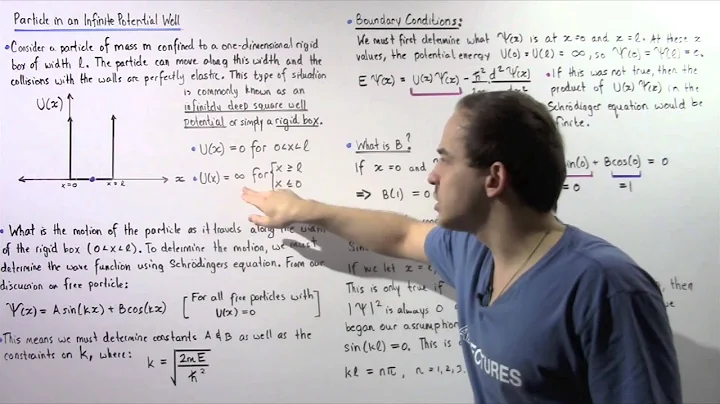 Particle in an Infinite Potential Well
• Consider a particle of mass m confined to a one-dimensional rigid
box of width l. The particle can move along this width and the
collisions with the walls are perfectly elastic. This type of situation
is commonly known as an
infinitely deep square well
potential or simply a rigid box.
U(x)
• U(x) = 0 for 0<x<l
• U(x) = ∞ for { x ≥ l
x ≤ 0
x=0 x=l x
• What is the motion of the particle as it travels along the
of the rigid box (0<x<l). To determine the motion, we must
determine the wave function using Schrödingers equation. From our
discussion on free particle:
Ψ(x) = A sin(kx) + B cos(kx) [For all free particles with
U(x) = 0]
• This means we must determine constants A & B as well as the
constraints on k, where: k = √(2mE/ħ²)
• Boundary Conditions:
We must first determine what Ψ(x) is at x=0 and x=l. At these x
values, the potential energy U(0) = U(l) = ∞, so Ψ(0) = Ψ(l) = 0.
E Ψ(x) = U(x) Ψ(x) - ħ² d²Ψ(x)
• If this was not true, then the
product of U(x) Ψ(x) in the
Schrödinger equation would be
• What is B?
If x=0 and
sin(0) + B cos(0) = 0
=0 =1
⇒ B(1) = 0
If we let x =
This is only true if
then
|Ψ|² is always 0
we
began our assumption
sin(kl) = 0. This is
kl = nπ, n = 1, 2, 3
LECTURES